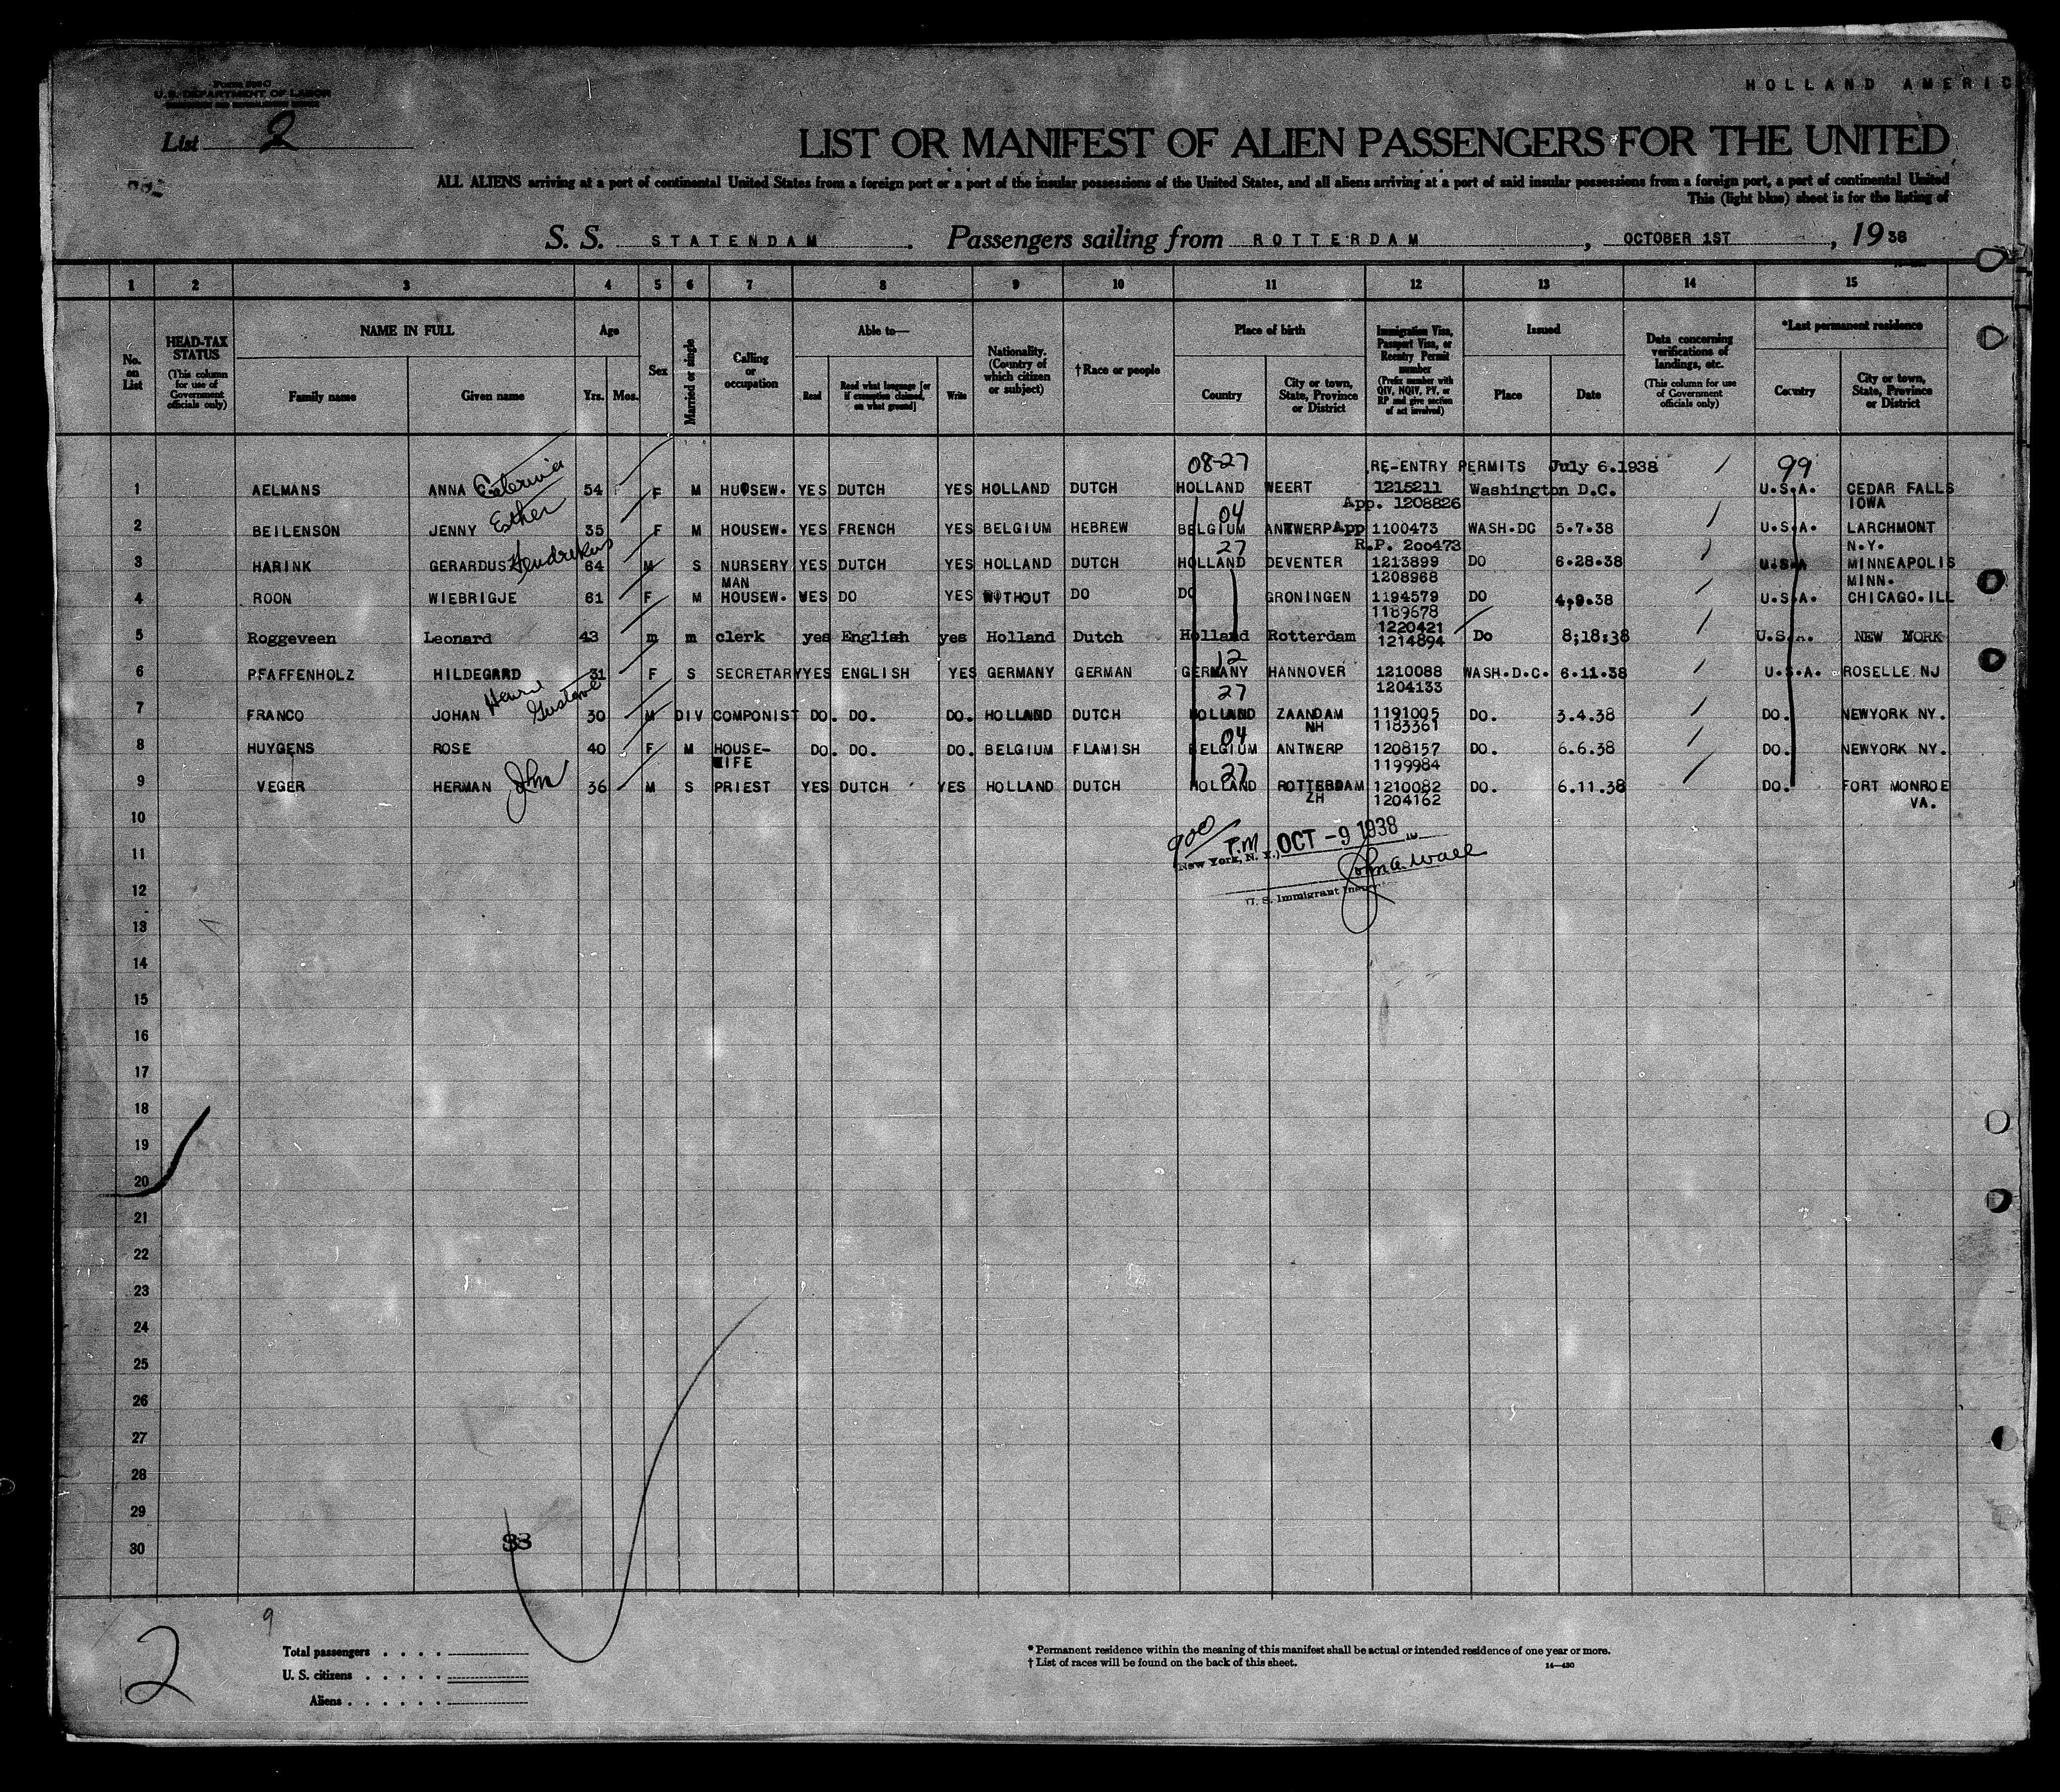 Form 500 C
U.S. DEPARTMENT OF LABOR
HOLLAND AMERIC
List 2
LIST OR MANIFEST OF ALIEN PASSENGERS FOR THE UNITED
ALL ALIENS arriving at a port of continental United States from a foreign port or a port of the insular possessions of the United States, and all aliens arriving at a port of said insular possessions from a foreign port, a port of continental United
This (light blue) sheet is for the listing of
S. S. STATENDAM. Passengers sailing from ROTTERDAM, OCTOBER 1ST, 1938
1 2 3 4 5 6 7 8 9 10 11 12 13 14 15
No. on List
HEAD-TAX STATUS (This column for use of Government officials only)
NAME IN FULL
Family name Given name
Age
Yrs. Mos.
Sex
Married or single
Calling or occupation
Able to—
Read Read what language [or if exemption claimed, on what ground] Write
Nationality. (Country of which citizen or subject)
†Race or people
Place of birth
Country City or town, State, Province or District
Immigration Visa, Passport Visa, or Reentry Permit number (Prefix number with QIV, NQIV, PV, or RP and give section of act involved)
Issued
Place Date
Data concerning verifications of landings, etc. (This column for use of Government officials only)
*Last permanent residence
Country City or town, State, Province or District
08-27 RE-ENTRY PERMITS July 6.1938 99
1 AELMANS ANNA 54 F M HOUSEW. YES DUTCH YES HOLLAND DUTCH HOLLAND WEERT 1215211 Washington D.C. U.S.A. CEDAR FALLS
Esther 04 App. 1208826 IOWA
2 BEILENSON JENNY 35 F M HOUSEW. YES FRENCH YES BELGIUM HEBREW BELGIUM ANTWERP App 1100473 WASH.DC 5.7.38 U.S.A. LARCHMONT
Hendrekus 27 R.P. 200473 N.Y.
3 HARINK GERARDUS 64 M S NURSERY YES DUTCH YES HOLLAND DUTCH HOLLAND DEVENTER 1213899 DO 6.28.38 U.S.A MINNEAPOLIS
MAN 1208968 MINN.
4 ROON WIEBRIGJE 61 F M HOUSEW. YES DO YES WITHOUT DO DO GRONINGEN 1194579 DO 4.9.38 U.S.A. CHICAGO.ILL
1189678
1220421
5 Roggeveen Leonard 43 m m clerk yes English yes Holland Dutch Holland Rotterdam 1214894 Do 8;18:38 U.S.A. NEW YORK
12
6 PFAFFENHOLZ HILDEGARD 31 F S SECRETARY YES ENGLISH YES GERMANY GERMAN GERMANY HANNOVER 1210088 WASH.D.C. 6.11.38 U.S.A. ROSELLE NJ
Henri Gustave 27 1204133
7 FRANCO JOHAN 30 M DIV COMPONIST DO. DO. DO. HOLLAND DUTCH HOLLAND ZAANDAM 1191005 DO. 3.4.38 DO. NEWYORK NY.
04 NH 1183361
8 HUYGENS ROSE 40 F M HOUSE- DO. DO. DO. BELGIUM FLAMISH BELGIUM ANTWERP 1208157 DO. 6.6.38 DO. NEWYORK NY.
WIFE 27 1199984
9 VEGER HERMAN John 36 M S PRIEST YES DUTCH YES HOLLAND DUTCH HOLLAND ROTTERDAM 1210082 DO. 6.11.38 DO. FORT MONROE
ZH 1204162 VA.
10
900 P.M. OCT -9 1938
11
(New York, N. Y.)
John A. Wall
12
U. S. Immigrant
13
14
15
16
17
18
19
20
21
22
23
24
25
26
27
28
29
33
30
9
2
Total passengers
U. S. citizens
Aliens
* Permanent residence within the meaning of this manifest shall be actual or intended residence of one year or more.
† List of races will be found on the back of this sheet.
14—430